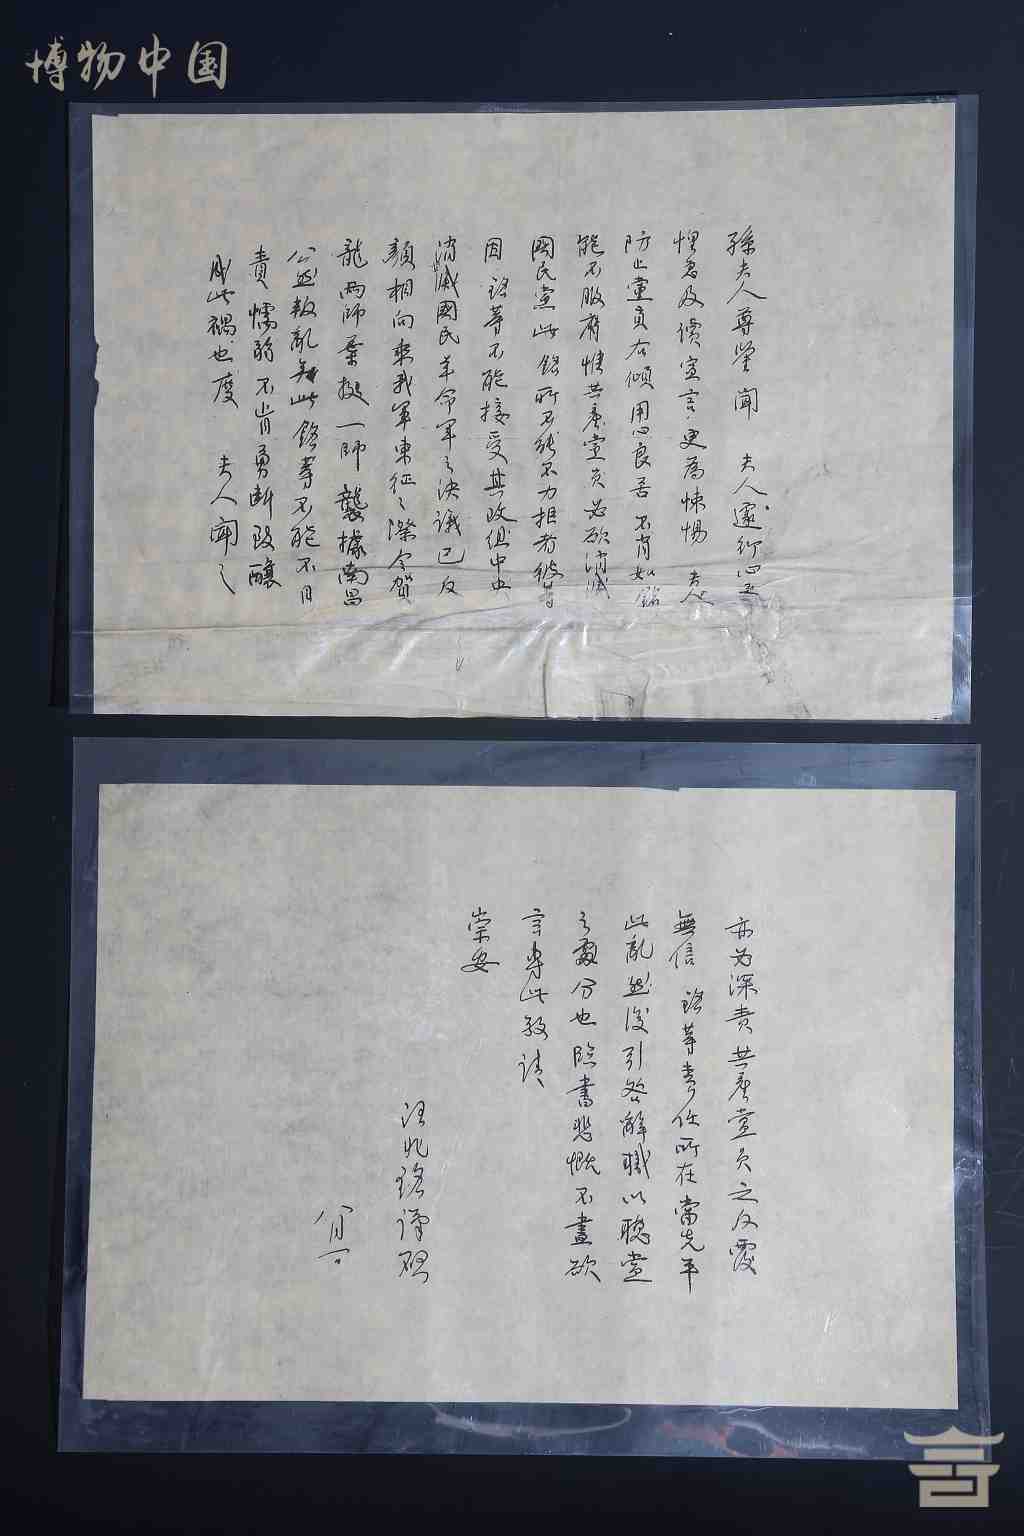 博物中国
孫夫人尊鑒 聞 夫人遽行心至
惶窘及讀宣言更為悚惕 夫人
防止黨員右傾用心良苦 不肖如銘
能不服膺惟共產黨員必欲消滅
國民黨此銘所不能不力拒者彼等
因銘等不能接受其改組中央
消滅國民革命軍之決議已反
顏相向乘我軍東征之際令賀
龍兩師葉挺一師襲據南昌
公然叛亂無此銘等不能不自
責懦弱不肯勇斷致釀
成此禍也度 夫人聞之
亦必深責共產黨員之反覆
無信 銘等責任所在當先平
此亂然後引咎解職以聽黨
之處分也臨書悲慨不盡欲
言專此敬請
崇安
汪兆銘謹啟
八月一日